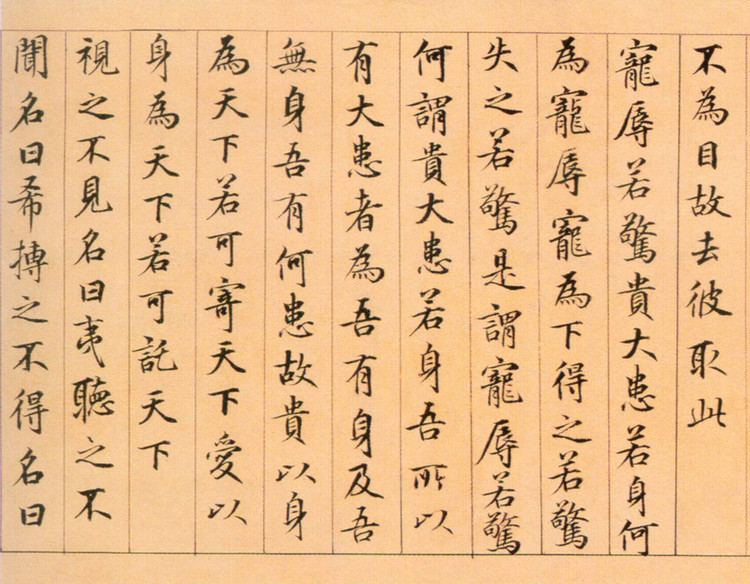 不為目故去彼取此
寵辱若驚貴大患若身何
為寵辱寵為下得之若驚
失之若驚是謂寵辱若驚
何謂貴大患若身吾所以
有大患者為吾有身及吾
無身吾有何患故貴以身
為天下若可寄天下愛以
身為天下若可託天下
視之不見名曰夷聽之不
聞名曰希搏之不得名曰